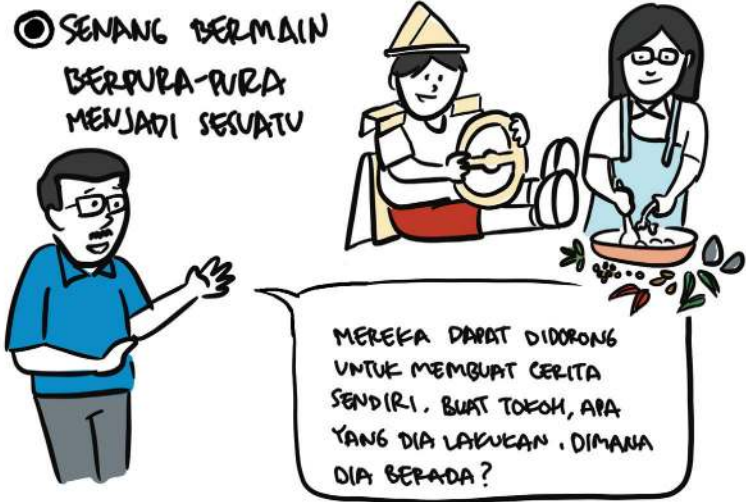 SENANG BERMAIN
BERPURA-PURA
MENJADI SESUATU
MEREKA DAPAT DIDORONG
UNTUK MEMBUAT CERITA
SENDIRI. BUAT TOKOH, APA
YANG DIA LAKUKAN. DIMANA
DIA BERADA?